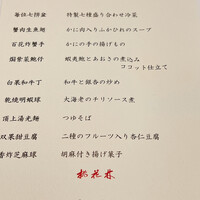 每位七拼盆 特製七種盛り合わせ冷菜
蟹肉生魚翅 かに肉入りふかひれのスープ
百花炸蟹手 かにの手の揚げもの
鮑仔 蝦夷鮑とあわさの煮込み
ココット仕立て
白果和牛丁 和牛と銀杏の炒め
乾焼明蝦球 大海老のチリソース煮
頂上湯光麺 つゆそば
双果甜豆腐 二種のフルーツ入り杏仁豆腐
香炸芝麻球 胡麻付き揚げ菓子
桃花林